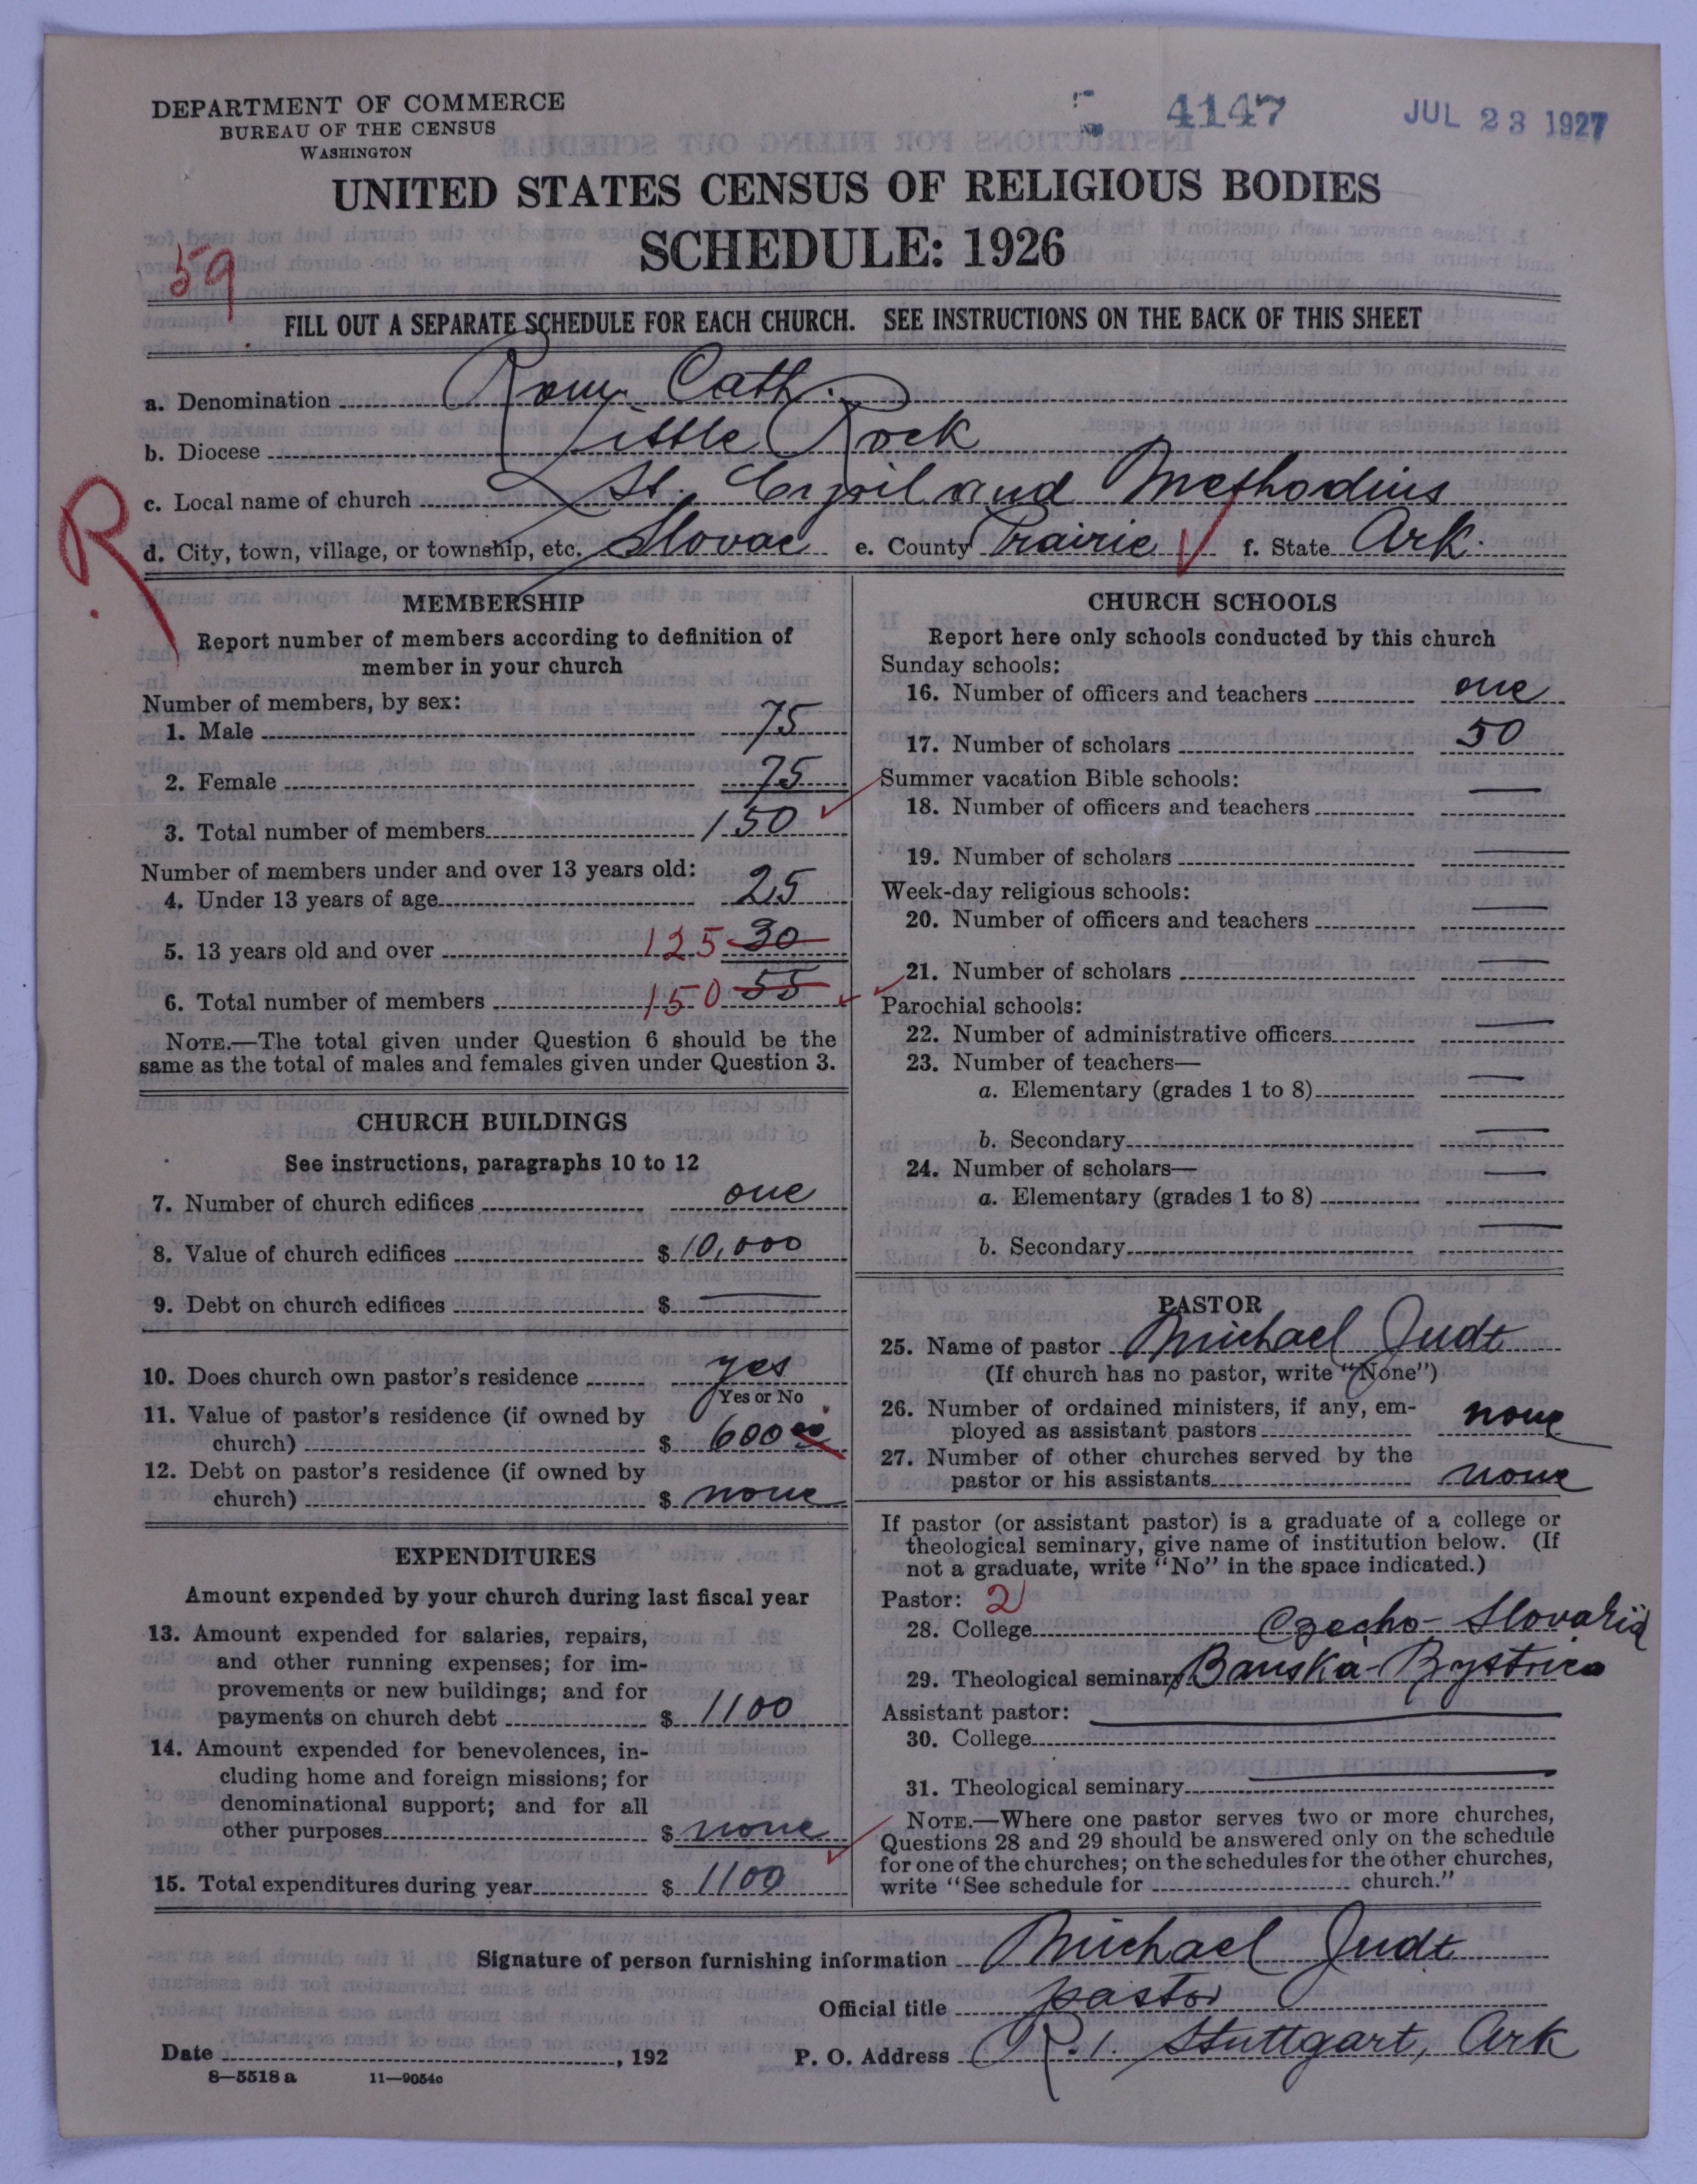 DEPARTMENT OF COMMERCE
BUREAU OF THE CENSUS
WASHINGTON
4147
JUL 23 1927
UNITED STATES CENSUS OF RELIGIOUS BODIES
SCHEDULE: 1926
59
FILL OUT A SEPARATE SCHEDULE FOR EACH CHURCH. SEE INSTRUCTIONS ON THE BACK OF THIS SHEET
a. Denomination Rom. Cath.
b. Diocese Little Rock
R
c. Local name of church St. Cyril and Methodius
d. City, town, village, or township, etc. Slovac e. County Prairie f. State Ark.
MEMBERSHIP
Report number of members according to definition of
member in your church
Number of members, by sex:
1. Male 75
2. Female 75
3. Total number of members 150
Number of members under and over 13 years old:
4. Under 13 years of age 25
5. 13 years old and over 125 30
6. Total number of members 150 55
NOTE.—The total given under Question 6 should be the
same as the total of males and females given under Question 3.
CHURCH BUILDINGS
See instructions, paragraphs 10 to 12
7. Number of church edifices one
8. Value of church edifices $ 10,000
9. Debt on church edifices $ —
10. Does church own pastor's residence yes
Yes or No
11. Value of pastor's residence (if owned by
church) $ 600 00
12. Debt on pastor's residence (if owned by
church) $ none
EXPENDITURES
Amount expended by your church during last fiscal year
13. Amount expended for salaries, repairs,
and other running expenses; for im-
provements or new buildings; and for
payments on church debt $ 1100
14. Amount expended for benevolences, in-
cluding home and foreign missions; for
denominational support; and for all
other purposes $ none
15. Total expenditures during year $ 1100
CHURCH SCHOOLS
Report here only schools conducted by this church
Sunday schools:
16. Number of officers and teachers one
17. Number of scholars 50
Summer vacation Bible schools:
18. Number of officers and teachers —
19. Number of scholars —
Week-day religious schools:
20. Number of officers and teachers —
21. Number of scholars —
Parochial schools:
22. Number of administrative officers —
23. Number of teachers—
a. Elementary (grades 1 to 8) —
b. Secondary —
24. Number of scholars—
a. Elementary (grades 1 to 8) —
b. Secondary —
PASTOR
25. Name of pastor Michael Judt
(If church has no pastor, write "None")
26. Number of ordained ministers, if any, em-
ployed as assistant pastors none
27. Number of other churches served by the
pastor or his assistants none
If pastor (or assistant pastor) is a graduate of a college or
theological seminary, give name of institution below. (If
not a graduate, write "No" in the space indicated.)
Pastor: 2
28. College Czecho-Slovakia
29. Theological seminary Banska-Bystrica
Assistant pastor: —
30. College
31. Theological seminary —
NOTE.—Where one pastor serves two or more churches,
Questions 28 and 29 should be answered only on the schedule
for one of the churches; on the schedules for the other churches,
write "See schedule for church."
Signature of person furnishing information Michael Judt
Official title pastor
Date , 192 P. O. Address R. 1. Stuttgart, Ark
8—5518 a 11—9054c